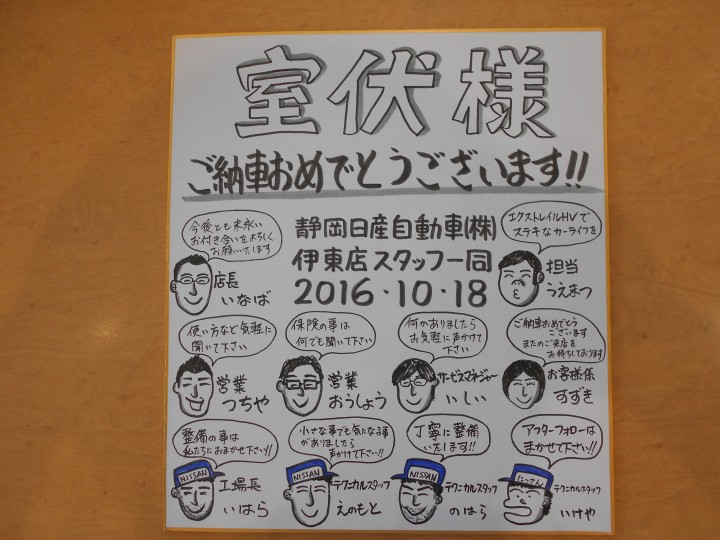 室伏様
ご納車おめでとうございます!!
今後とも末永い
お付き合いをよろしく
お願いいたします
店長
いなば
静岡日産自動車(株)
伊東店スタッフ一同
2016・10・18
エクストレイルHVで
ステキなカーライフを
担当
うえまつ
使い方など気軽に
聞いて下さい
営業
つちや
保険の事は
何でも聞いて下さい
営業
おうしょう
何かありましたら
お気軽に声かけて
下さい
サービスマネジャー
いしい
ご納車おめでとう
ございます
またのご来店を
お待ちしております
お客様係
すずき
整備の事は
私たちにおまかせ下さい!!
NISSAN
工場長
いはら
小さな事でも気になる事
がありましたら
声かけて下さい!!
NISSAN
テクニカルスタッフ
えのもと
丁寧に整備
いたします!!
NISSAN
テクニカルスタッフ
のはら
アフターフォローは
まかせて下さい!!
にっさん
テクニカルスタッフ
いけや